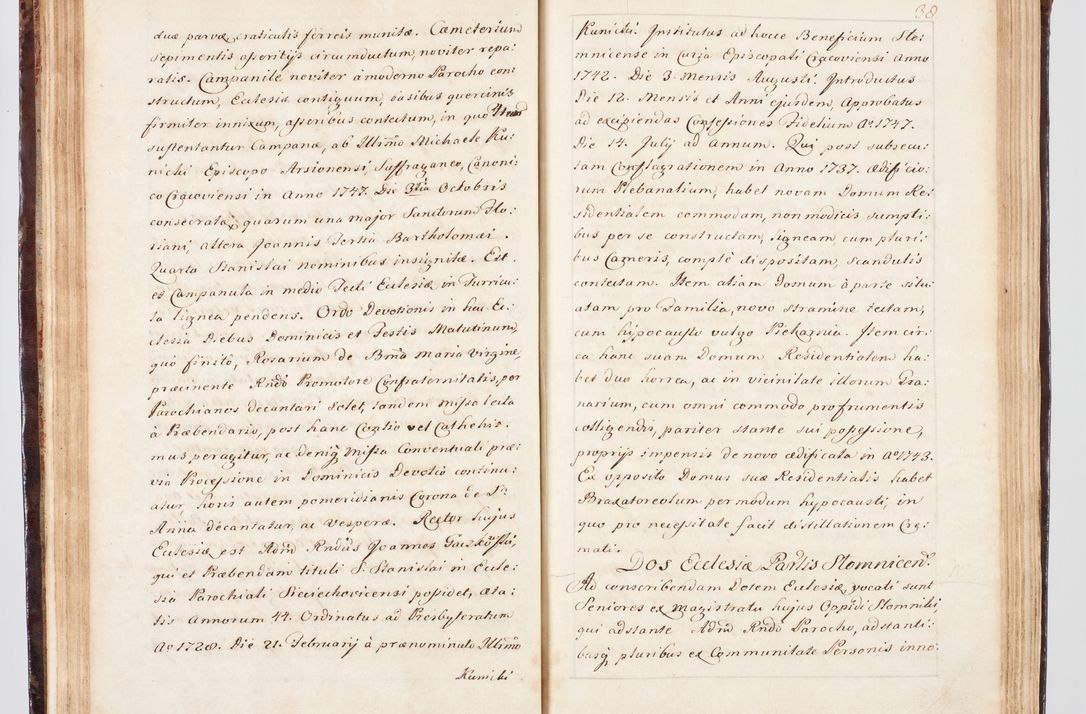 duæ parvæ, craticulis ferreis munitæ. Cæmeterium
sepimentis asseritijs circumductum, noviter repa:
ratis. Campanile noviter à moderno Parocho con:
structum, Ecclesiæ contiguum, basibus quercinis
firmiter innixum, asseribus contectum, in quo 4tuor
sustentantur Campanæ, ab Illrmo Michaele Ku:
nicki Episcopo Arsionensi, Suffraganeo, Canoni:
co Cracoviensi in Anno 1747. Die 3tia Octobris
consecratæ, quarum una major Sanctorum Flo:
riani, altera Joannis, Tertia Bartholomæi.
Quarta Stanislai nominibus insignitæ. Est
et Campanula in medio Tecti Ecclesiæ in Turricu:
la lignea pendens. Ordo Devotionis in hac Ec:
clesia Diebus Dominicis et Festis Matutinum,
quo finito, Rosarium de Bmâ Maria Virgine,
præcinente Rndo Promotore Confraternitatis, per
Parochianos decantari solet, tandem missa lecta
à Præbendario, post hanc Contio vel Cathehis:
mus peragitur, ac deniq Missa Conventuali præ:
via Processione in Dominicis Devotio continu:
atur, horis autem pomeridianis Corona de Sta
Anna decantatur, ac Vesperæ. Rector hujus
Ecclesiæ est Admd Rndus Joannes Gaczkowski,
qui et Præbendam tituli S. Stanislai in Eccle:
sia Parochiali Sieciechovicensi possidet, Æta:
tis Annorum 44. Ordinatus ad Presbyteratum
Ao 1728. Die 21. Februarij à prænominato Illrmo
Kunicki
38.
Kunicki. Institutus ad hocce Beneficium Slo:
mnicense in Curia Episcopali Cracoviensi Anno
1742. Die 3. Mensis Augusti. Introductus
Die 12. Mensis et Anni ejusdem, Approbatus
ad excipiendas Confessiones Fidelium Ao 1747.
Die 14. July ad annum. Qui post subsecu:
tam Conflagrationem in Anno 1737. ædificio:
rum Plebanalium, habet novam Domum Re:
sidentialem commodam, non modicis sumpti:
bus per se constructam, ligneam, cum pluri:
bus Cameris, complè dispositam, scandulis
contectam. Item aliam Domum à parte situ:
atam pro Familia, novo stramine tectam,
cum hypocausto vulgo Piekarnia. Item cir:
ca hanc suam Domum Residentialem ha:
bet duo horrea, ac in vicinitate illorum Gra:
narium, cum omni commodo pro frumentis
colligendis, pariter stante sui possessione,
proprijs impensis de novo ædificata in Ao 1743.
Ex opposito Domus suæ Residentialis habet
Braxatoreolum per modum hypocausti, in
quo pro necessitate facit distillationem Cre:
mati.
Dos Ecclesiæ Parlis Slomnicen.
Ad conscribendam Dotem Ecclesiæ, vocati sunt
Seniores ex Magistratu hujus Oppidi Slomniki,
qui adstante Admd Rndo Parocho, adstanti:
busq pluribus ex Communitate Personis inno: